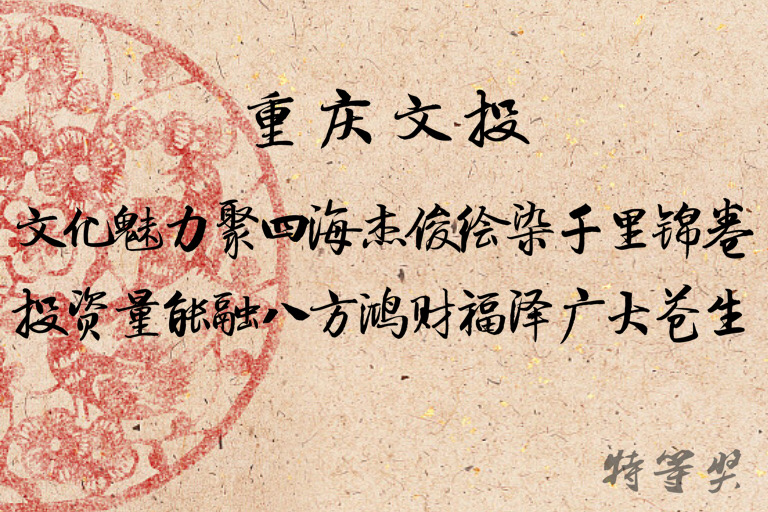 重庆文投
文化魅力聚四海杰俊绘染千里锦卷
投资量能融八方鸿财福泽广大苍生
特等奖